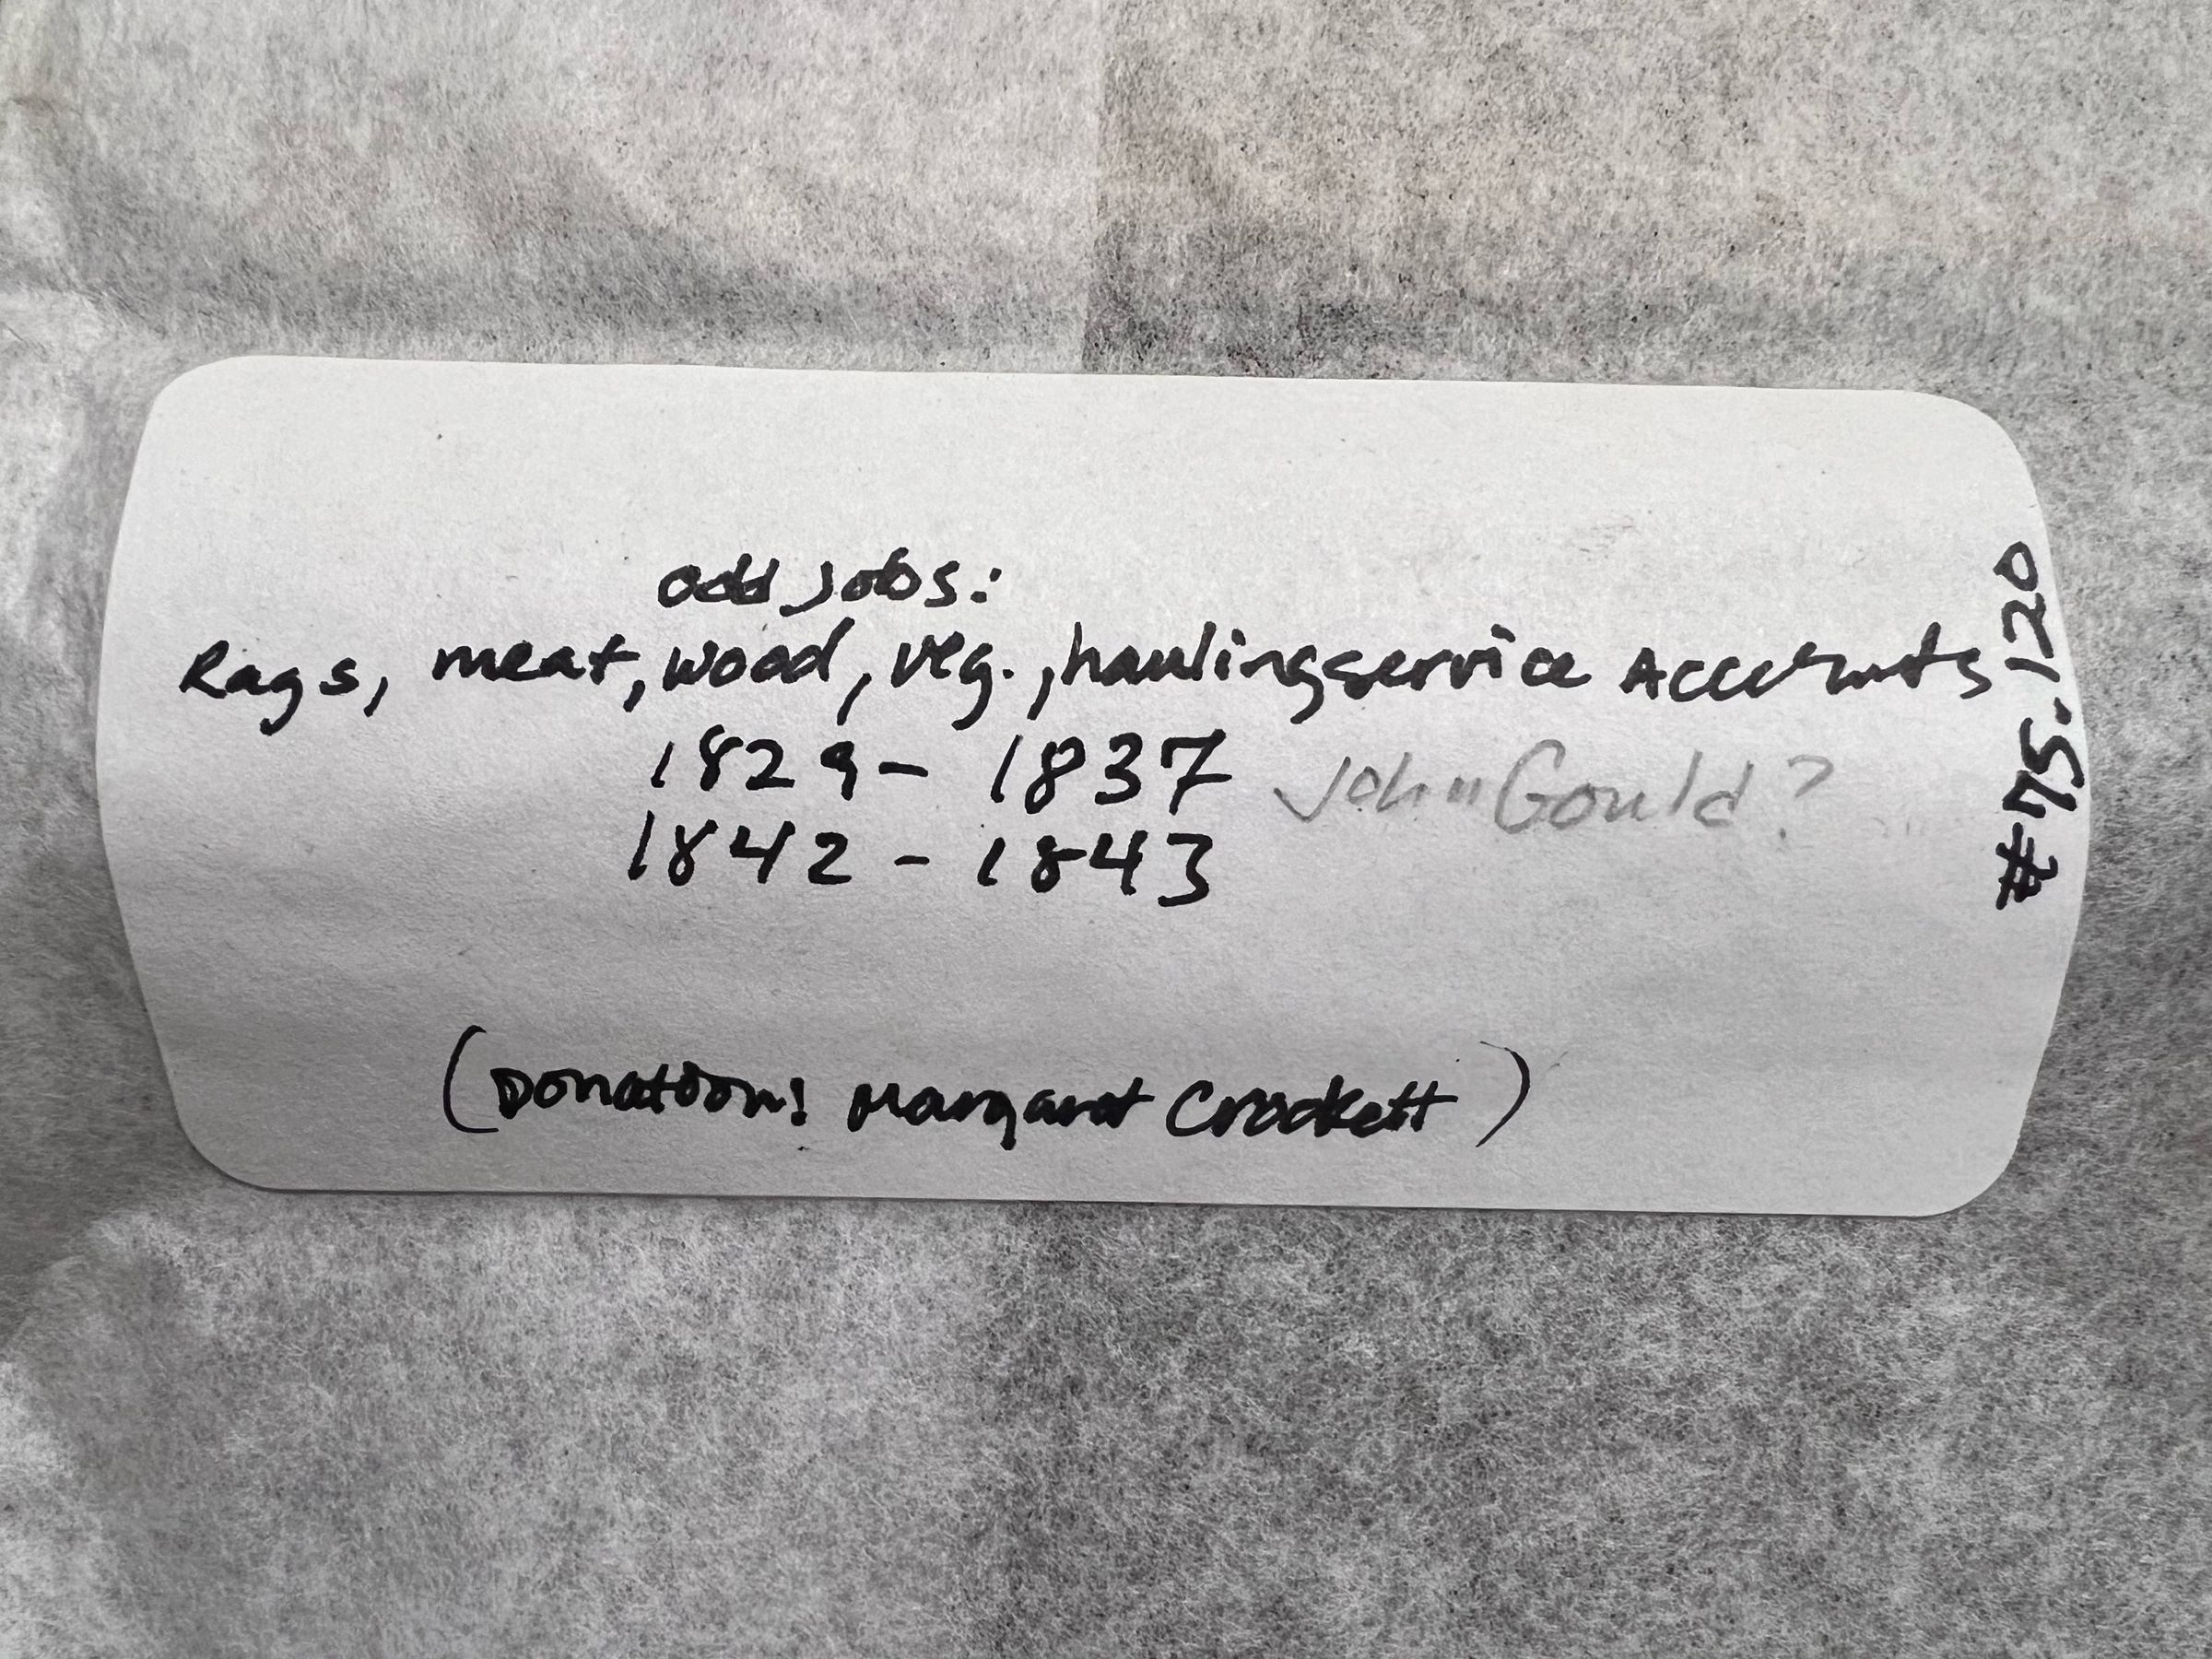 odd jobs:
Rags, meat, wood, veg., hauling service Accounts
1829 - 1837 John Gould?
1842 - 1843
(Donation: Margaret Crockett)
#75.120